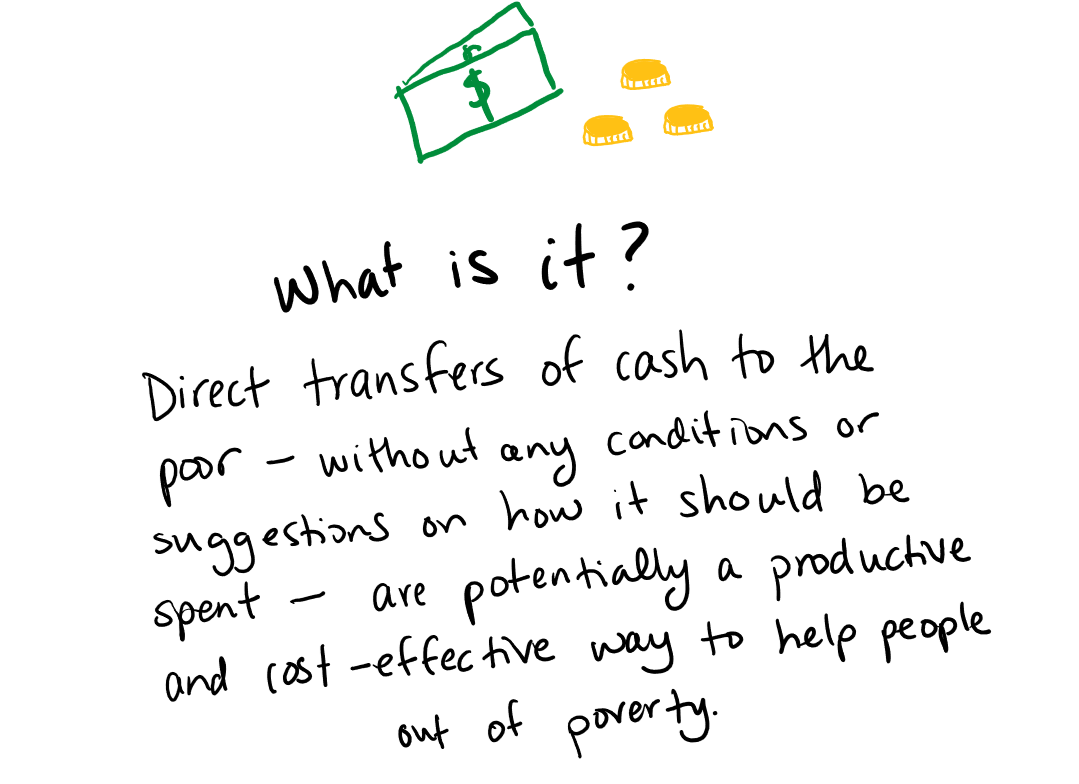 $
What is it?
Direct transfers of cash to the
poor - without any conditions or
suggestions on how it should be
spent - are potentially a productive
and cost-effective way to help people
out of poverty.